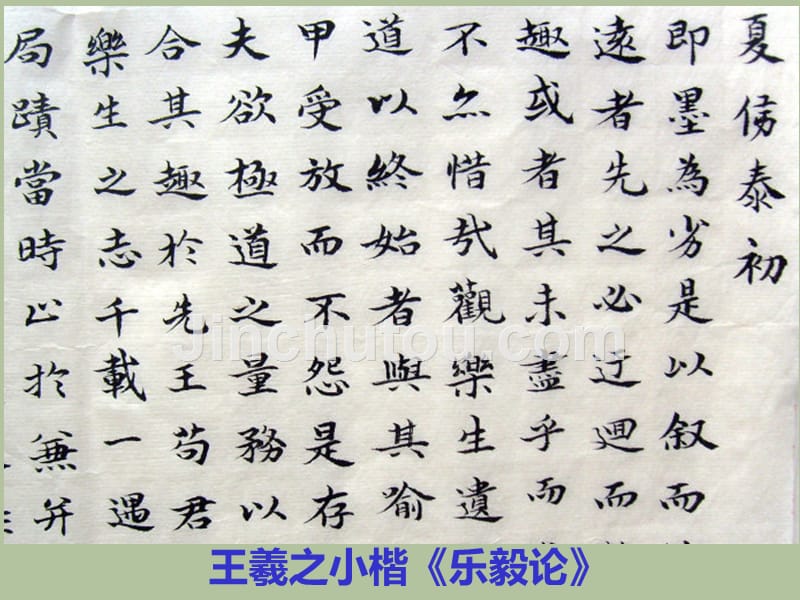 夏侯泰初
即墨為劣是以叙而
遠者先之必迂迴而
趣或者其未盡乎而
不亦惜哉觀樂生遺
道以終始者與其喻
甲受放而不怨是存
夫欲極道之量務以
合其趣於先王苟君
樂生之志千載一遇
局蹟當時止於兼并
Jinchutou.com
王羲之小楷《乐毅论》